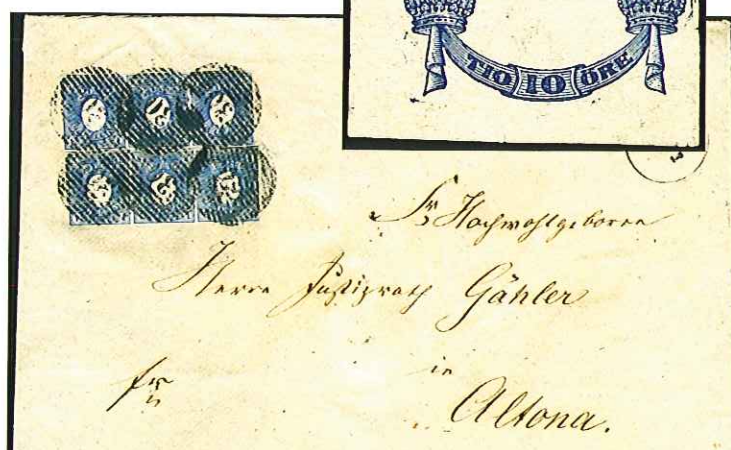 TIO 10 ÖRE
Sr Hochwohlgeboren
Herrn Justizrath Gähler
in
fr
Altona.